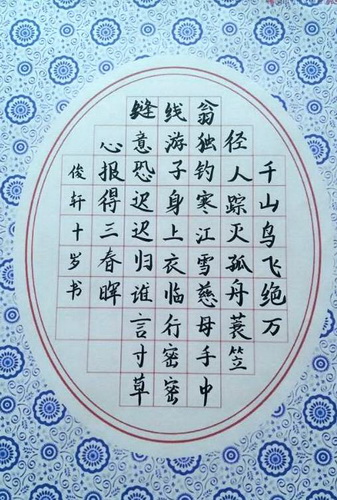 千山鸟飞绝万
径人踪灭孤舟蓑笠
翁独钓寒江雪慈母手中
线游子身上衣临行密密
缝意恐迟迟归谁言寸草
心报得三春晖
俊轩十岁书